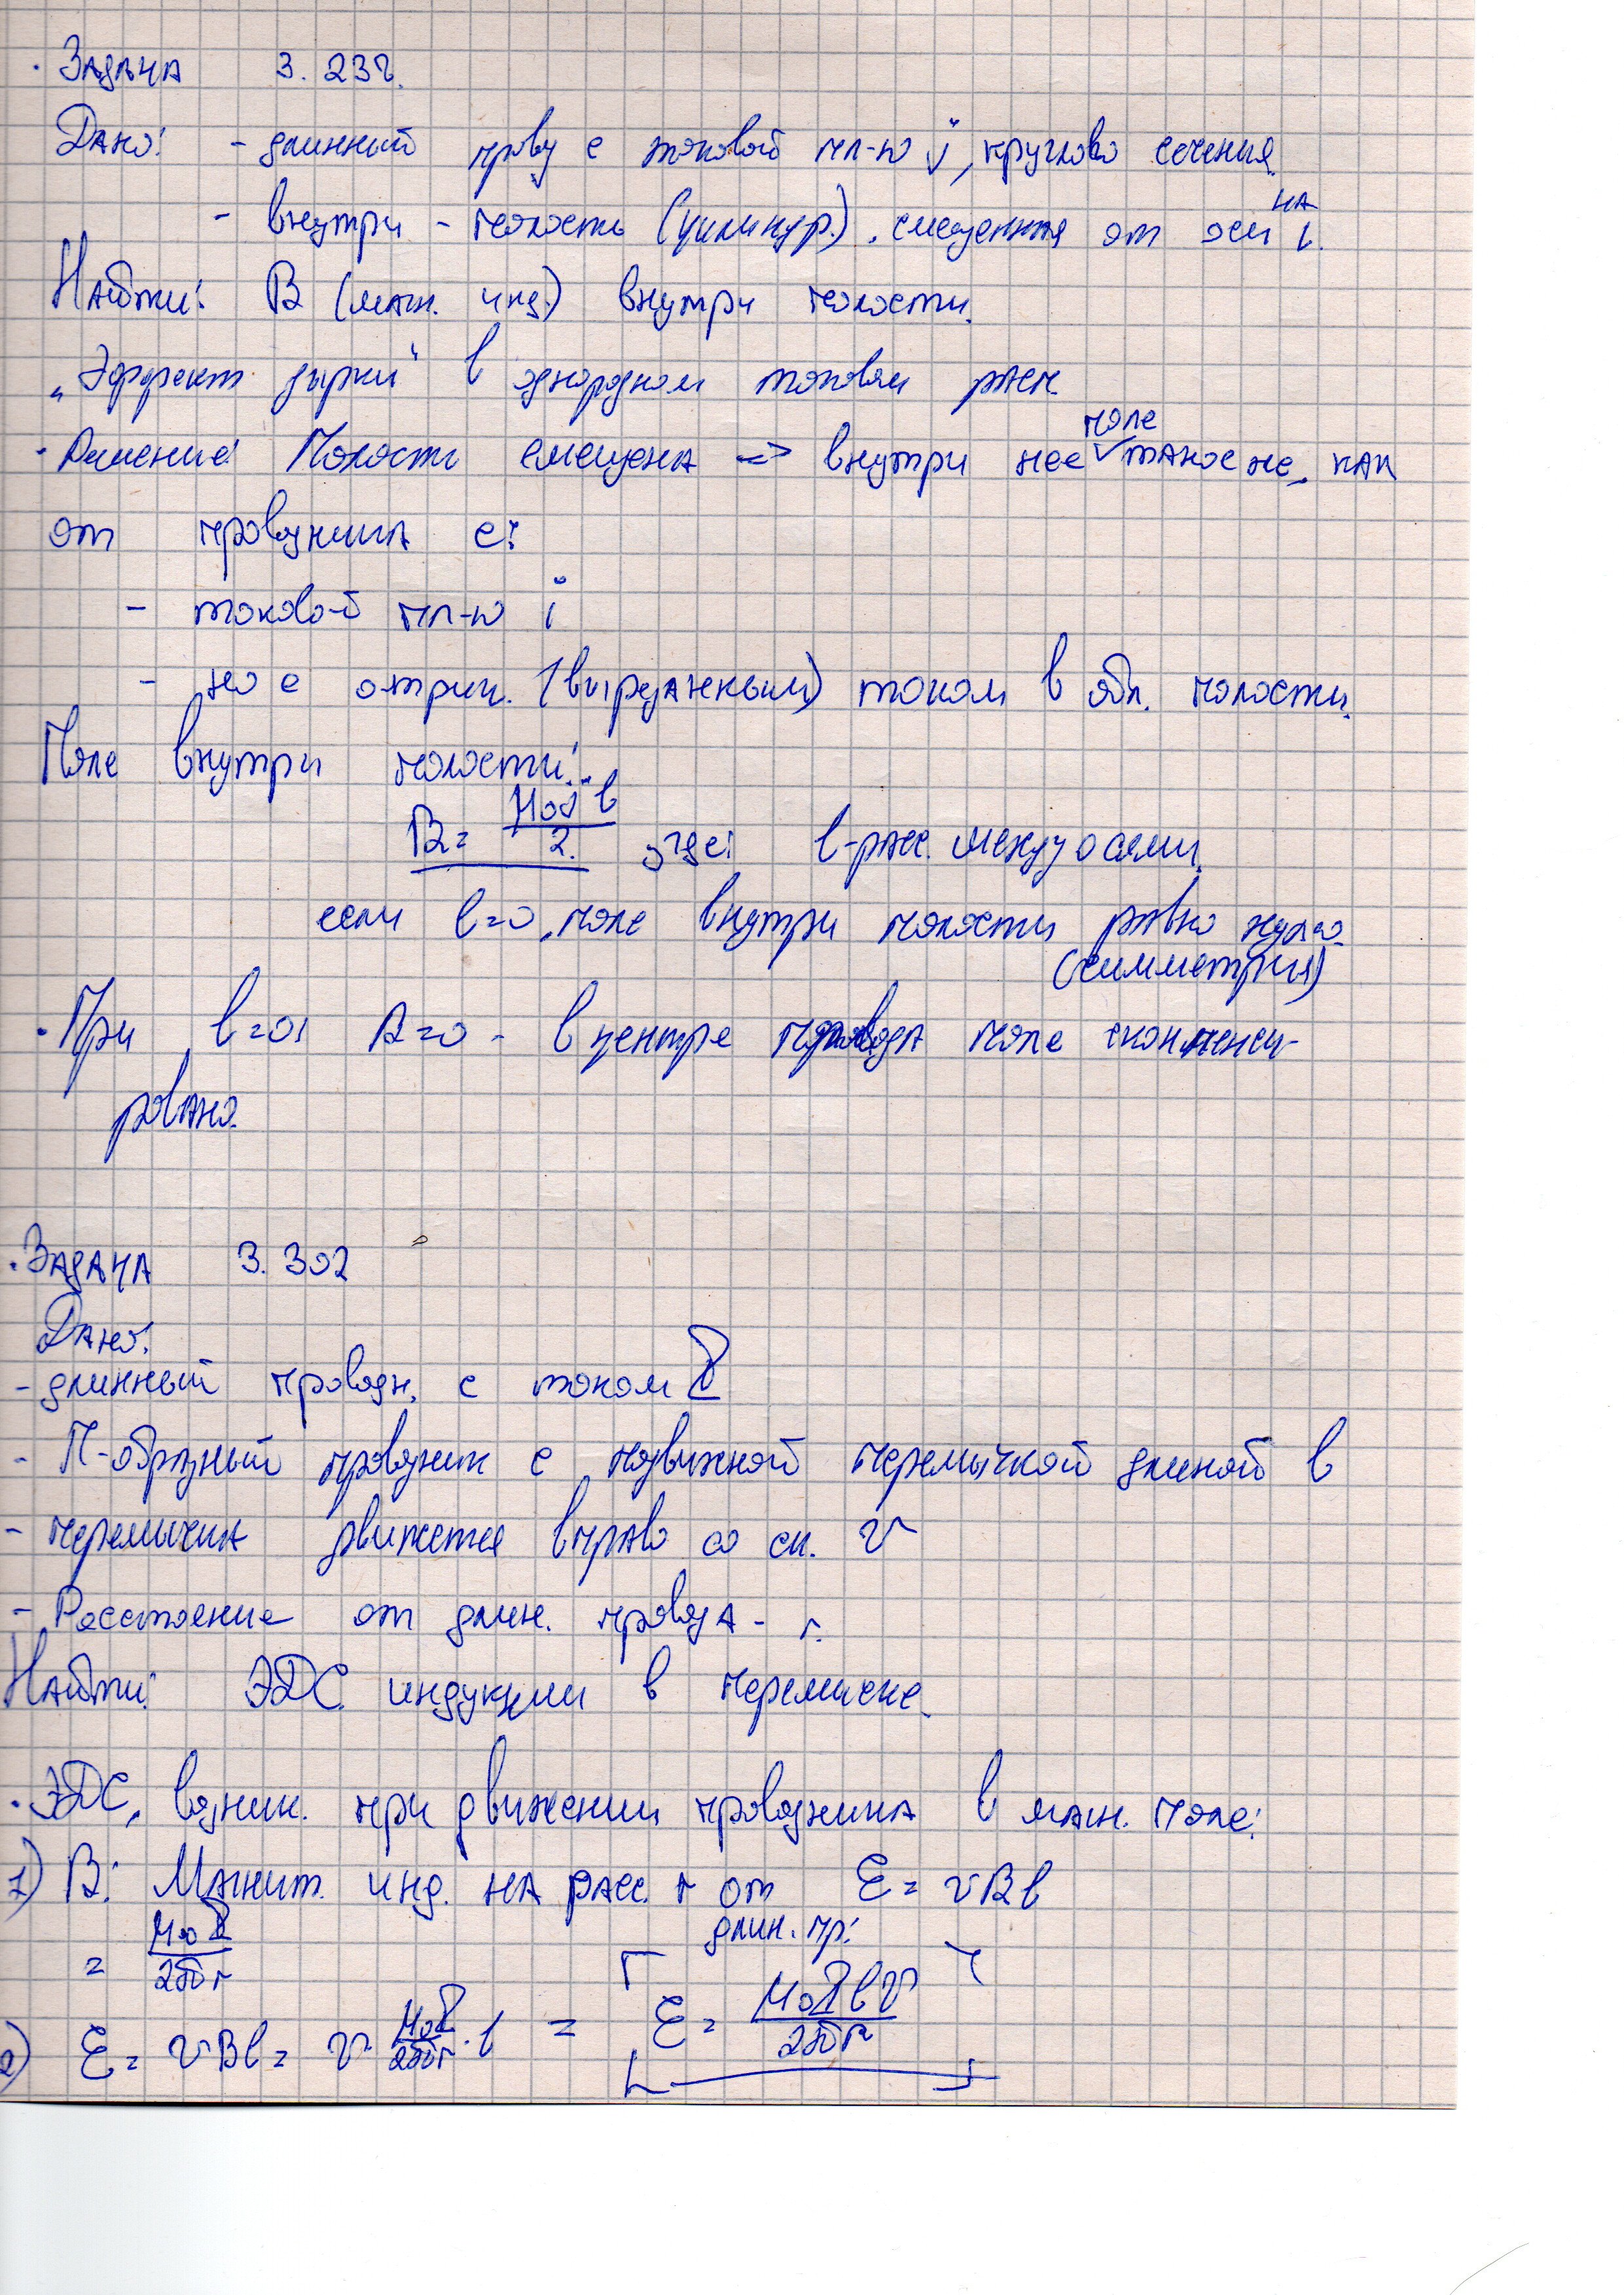 · Задача 3.232.
Дано: - длинный провод с токовой пл-ю j, круглого сечения.
- внутри - полость (цилиндр.), смещенная от оси на l.
Найти: B (магн. инд.) внутри полости.
„Эффект дырки“ в однородном токовом расп.
· Решение: Полость смещена => внутри нее поле такое же, как
от проводника с:
- токовой пл-ю j
- но с отриц. (вырезанным) током в обл. полости.
Поле внутри полости:
B = μ₀jl / 2. где: l - расс. между осями.
если l=0, поле внутри полости равно нулю.
(симметрия)
· При l=0: A=0 - в центре провода поле скомпенси-
ровано.
· Задача 3.302
Дано:
- длинный проводн. с током I
- П-образный проводник с подвижной перемычкой длиной l
- перемычка движется вправо со ск. v
- Расстояние от длин. провода - r.
Найти: ЭДС индукции в перемычке.
· ЭДС, возник. при движении проводника в магн. поле:
1) B: Магнит. инд. на расс. r от ℰ = vBl
длин. пр:
= μ₀I / 2πr
2) ℰ = vBl = v μ₀I / 2πr · l = ℰ = μ₀Ilv / 2πr